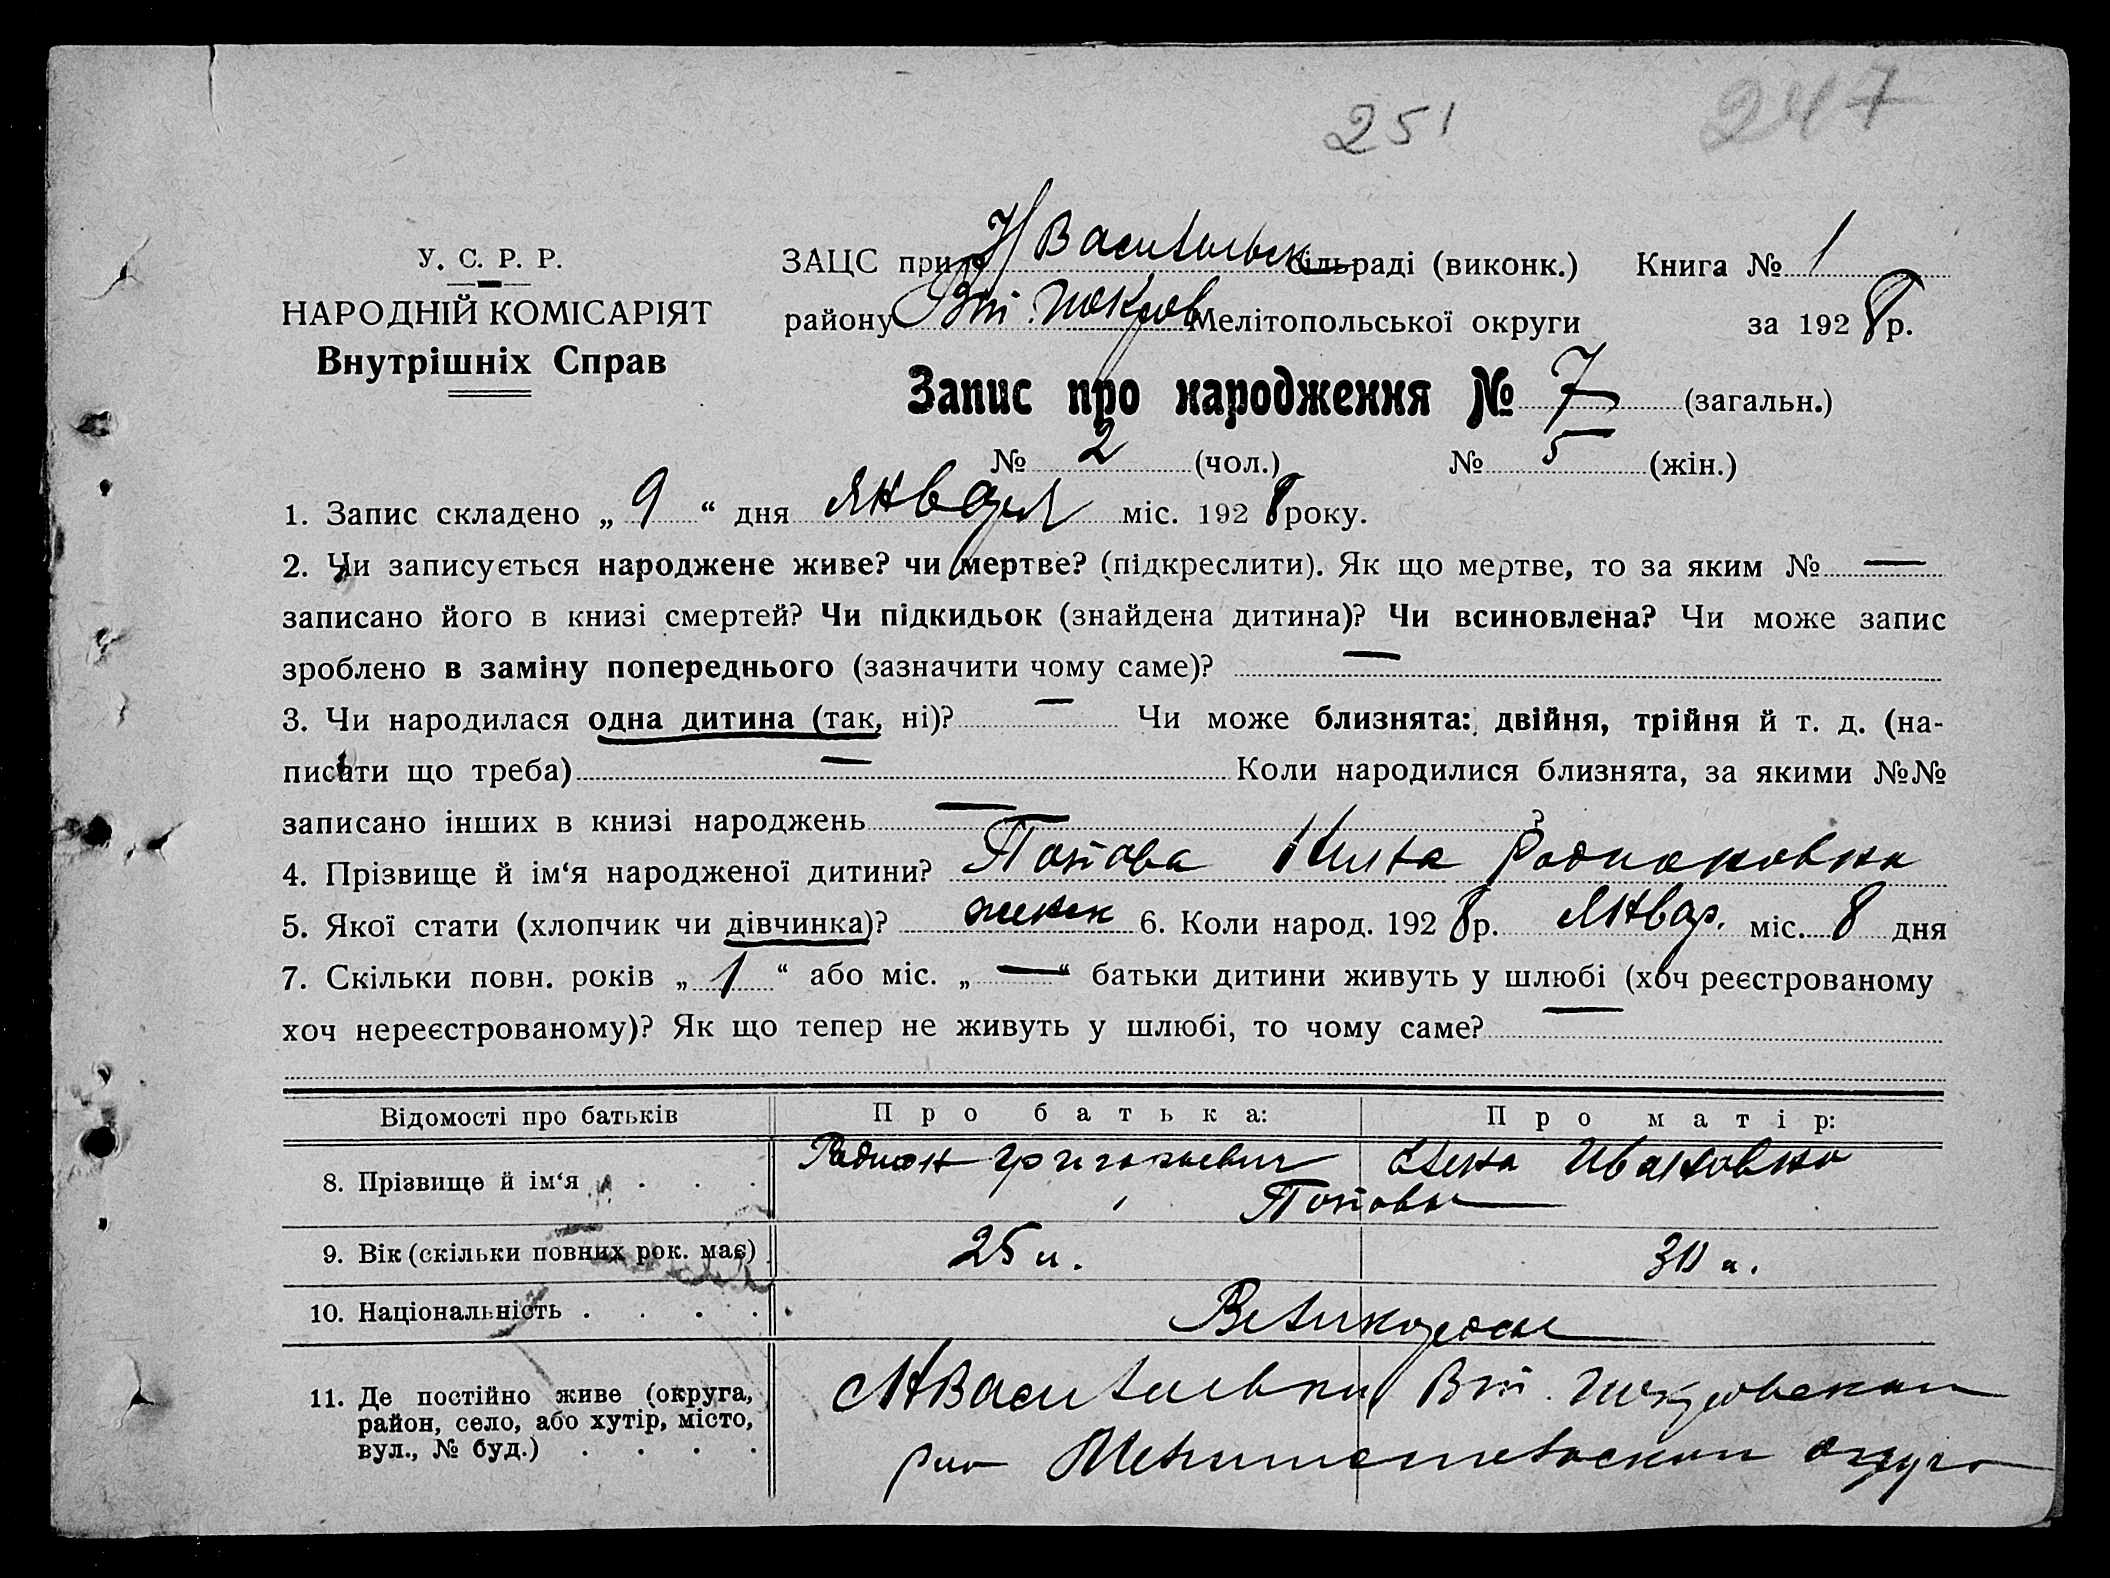 251 247
У. С. Р. Р.
НАРОДНІЙ КОМІСАРІЯТ
Внутрішніх Справ
ЗАЦС при Н Васильевск сільраді (виконк.) Книга № 1
району Вт. Покров Мелітопольської округи за 1928 р.
Запис про народження № 7 (загальн.)
№ 2 (чол.) № 5 (жін.)
1. Запис складено „ 9 “ дня января міс. 1928 року.
2. Чи записується народжене живе? чи мертве? (підкреслити). Як що мертве, то за яким № —
записано його в книзі смертей? Чи підкидьок (знайдена дитина)? Чи всиновлена? Чи може запис
зроблено в заміну попереднього (зазначити чому саме)? —
3. Чи народилася одна дитина (так, ні)? — Чи може близнята: двійня, трійня й т. д. (на-
писати що треба) — Коли народилися близнята, за якими №№
записано інших в книзі народжень — ?
4. Прізвище й ім‘я народженої дитини? Попова Родионовна
5. Якої стати (хлопчик чи дівчинка)? женск 6. Коли народ. 1928 р. Январ. міс. 8 дня
7. Скільки повн. років „ 1 “ або міс. „ — “ батьки дитини живуть у шлюбі (хоч реєстрованому
хоч нереєстрованому)? Як що тепер не живуть у шлюбі, то чому саме? —
Відомості про батьків Про батька: Про матір:
8. Прізвище й ім‘я . . . . Родион Григорьевич Ивановна
Поповы
9. Вік (скільки повних рок. має) 25 л. 30 л.
10. Національність . . . . Великоросы
11. Де постійно живе (округа,
район, село, або хутір, місто,
вул., № буд.) . . . .
Н Васильевки Вт. Покровского
рно Мелитопольской округа